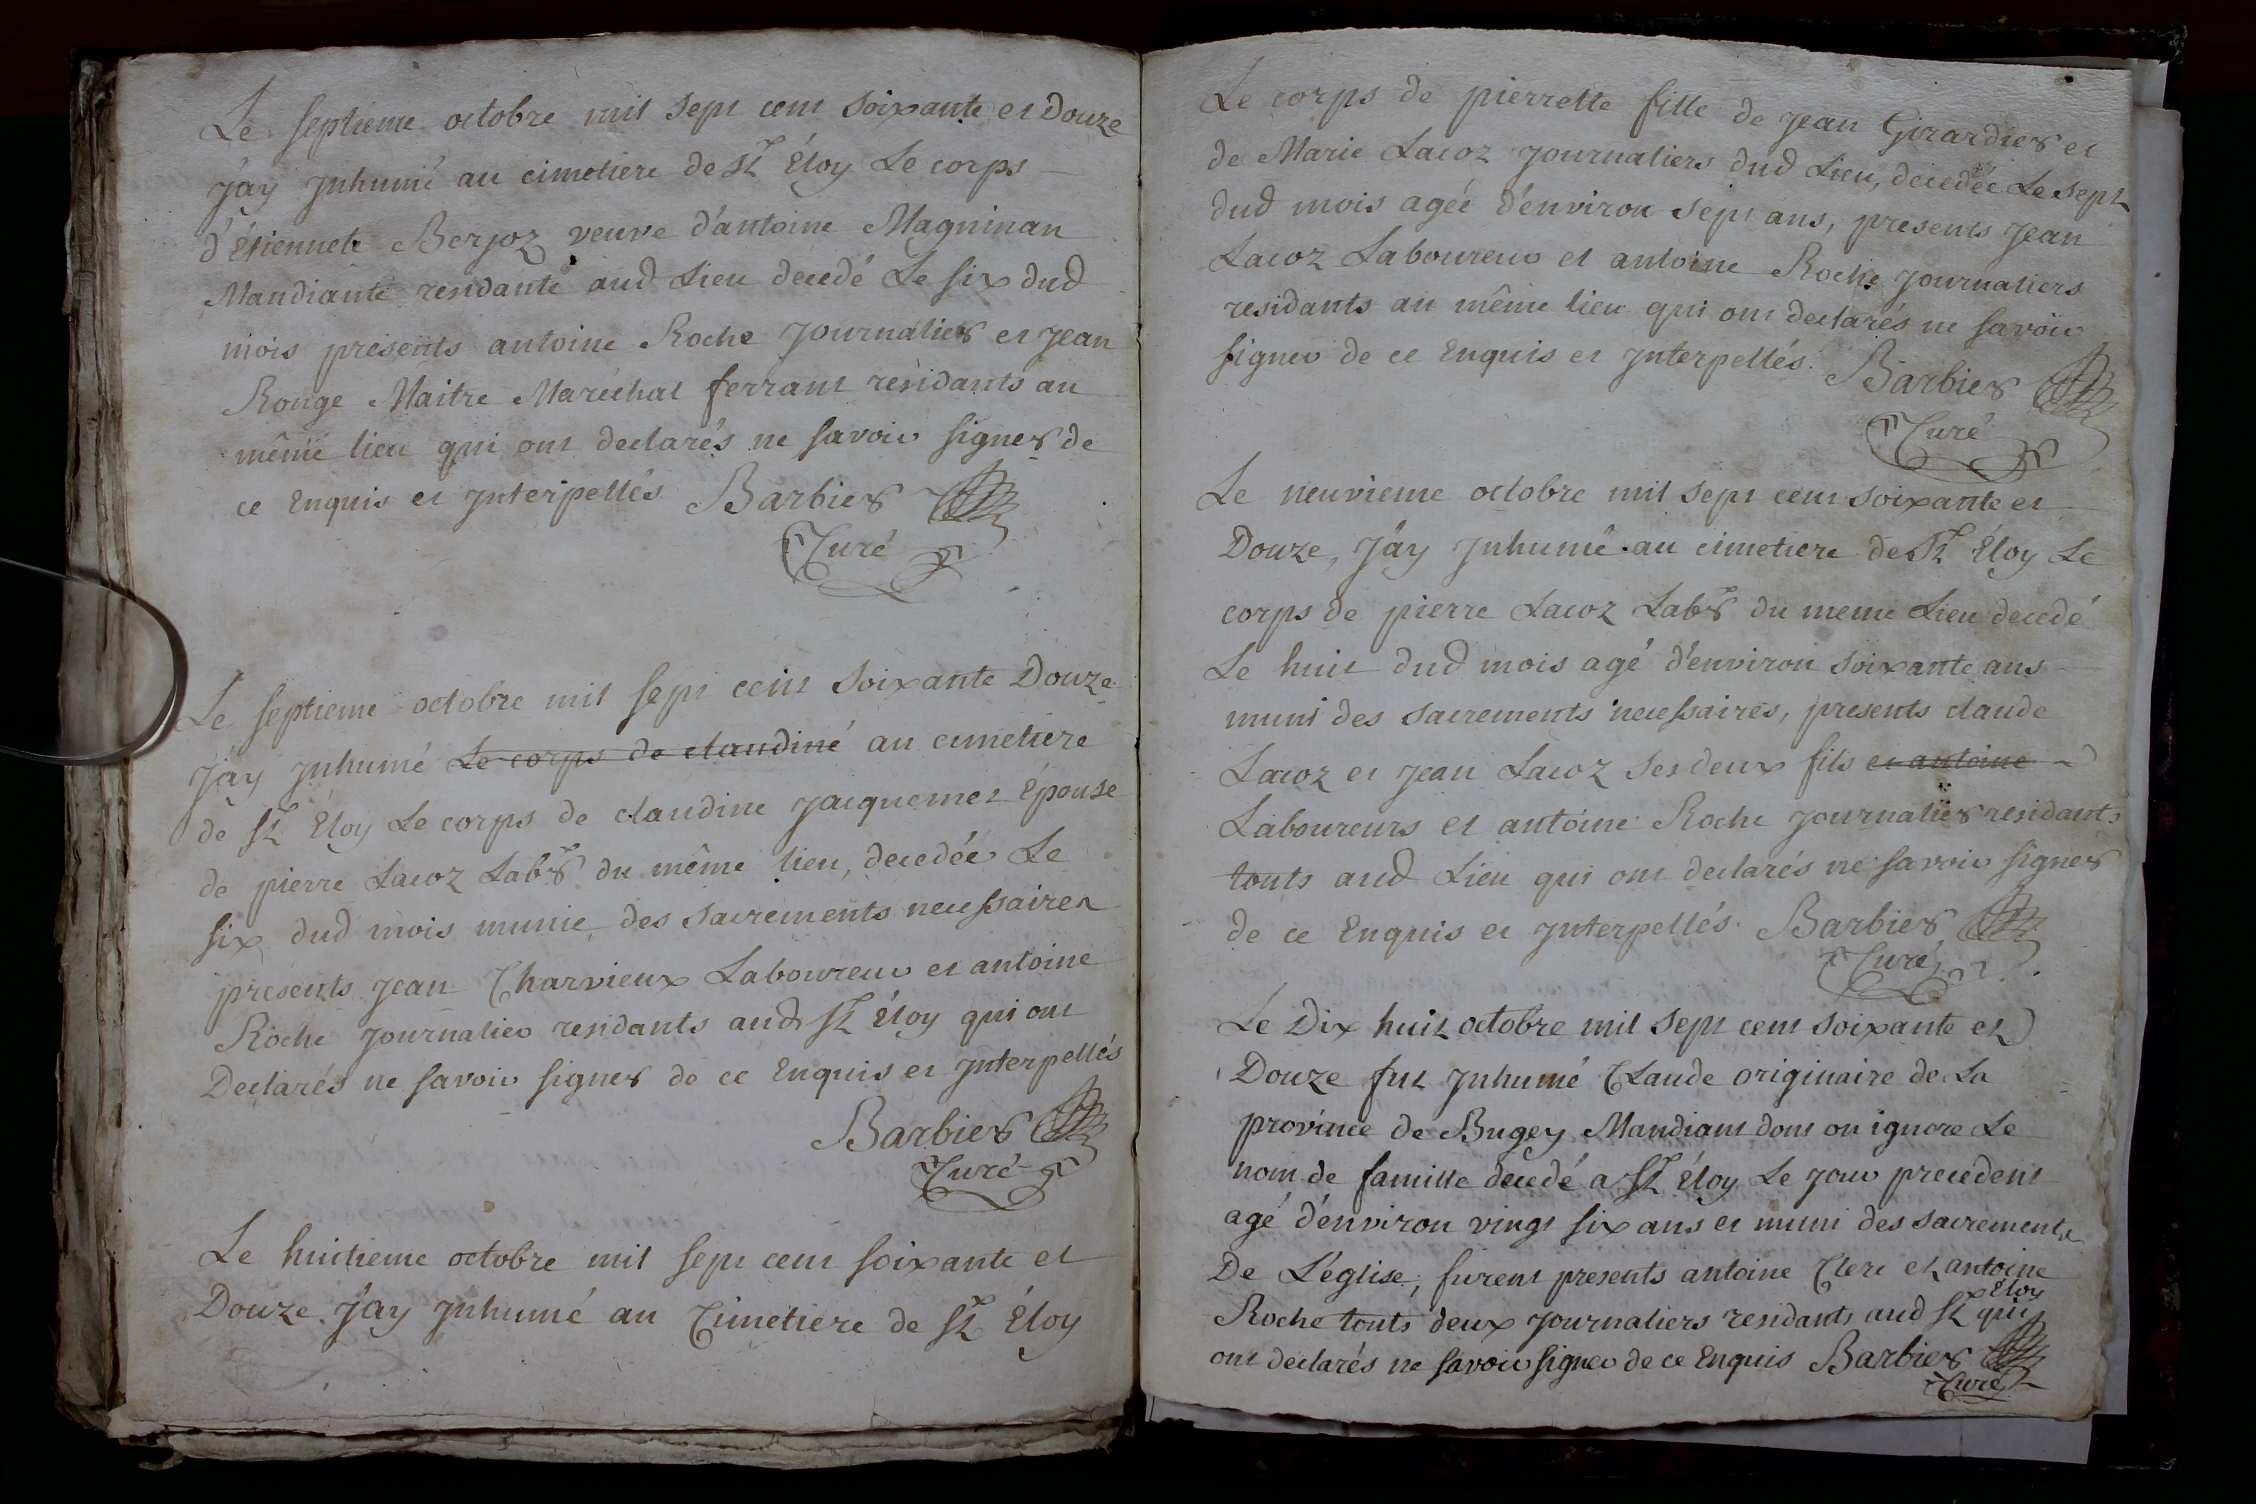 Le septieme octobre mil sept cent soixante et Douze
j'ay jnhumé au cimetiere de St Éloy Le corps
d'Étiennete Berjoz veuve d'antoine Magninan
Mandiante residante aud Lieu decedé Le six dud
mois présents antoine Roche journalier et jean
Rouge Maitre Maréchal ferrant résidants au
même lieu qui ont declarés ne savoir signer de
ce Enquis et jnterpellés Barbier
Curé
Le septieme octobre mil sept cent soixante Douze
j'ay jnhumé Le corps de claudine au cimetiere
de St Éloy Le corps de claudine jacquemet Épouse
de pierre Lacoz Labr du même lieu, decedée Le
six dud mois munie des sacrements necessaires
presents jean Charvieux Laboureur et antoine
Roche journalier residants aud St Éloy qui ont
Declarés ne savoir signer de ce Enquis et jnterpellés
Barbier
Curé
Le huitieme octobre mil sept cent soixante et
Douze j'ay jnhumé au Cimetiere de St Éloy
Le corps de pierrette fille de jean Girardier et
de Marie Lacoz journaliers dud Lieu, decedée Le sept
dud mois agée d'environ sept ans, presents jean
Lacoz Laboureur et antoine Roche journaliers
residants au même lieu qui ont declarés ne savoir
signer de ce Enquis et jnterpellés. Barbier
Curé
Le neuvieme octobre mil sept cent soixante et
Douze, j'ay jnhumé au cimetiere de St Éloy Le
corps de pierre Lacoz Labr du meme Lieu decedé
Le huit dud mois agé d'environ soixante ans
muni des sacrements necessaires, presents claude
Lacoz et jean Lacoz ses deux fils et antoine
Laboureurs et antoine Roche journalier residants
touts aud Lieu qui ont declarés ne savoir signer
de ce Enquis et jnterpellés. Barbier
Curé
Le Dix huit octobre mil sept cent soixante et
Douze fut jnhumé Claude originaire de La
province de Bugey Mandiant dont on ignore Le
nom de famille decedé a St Éloy Le jour precedent
agé d'environ vingt six ans et muni des sacrements
De L'église, furent presents antoine Clerc et antoine
Roche touts deux journaliers residants aud St Éloy qui
ont declarés ne savoir signer de ce Enquis Barbier
Curé